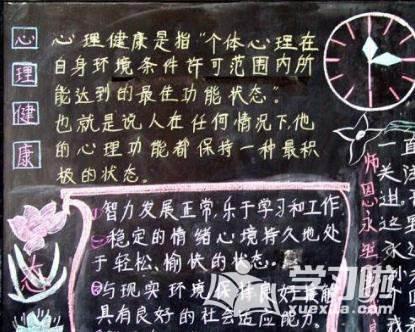 心
理
健
康
心理健康是指“个体心理在
自身环境条件许可范围内所
能达到的最佳功能状态”。
也就是说人在任何情况下,他
的心理功能都保持一种最积
极的状态。
智力发展正常,乐于学习和工作,
稳定的情绪心境持久地处
于轻松、愉快的状态。
与现实环境保持良好接触
具有良好的社会适应能力
师恩永
一直
关
学习啦